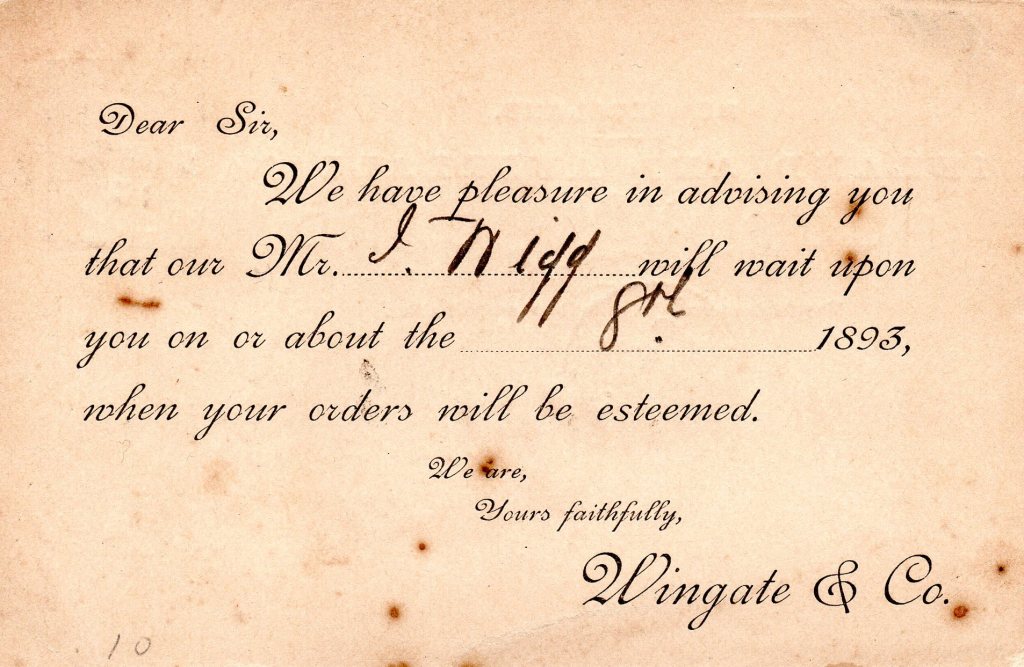 Dear Sir,
We have pleasure in advising you
that our Mr. Twigg will wait upon
you on or about the 8th 1893,
when your orders will be esteemed.
We are,
Yours faithfully,
Wingate & Co.
10